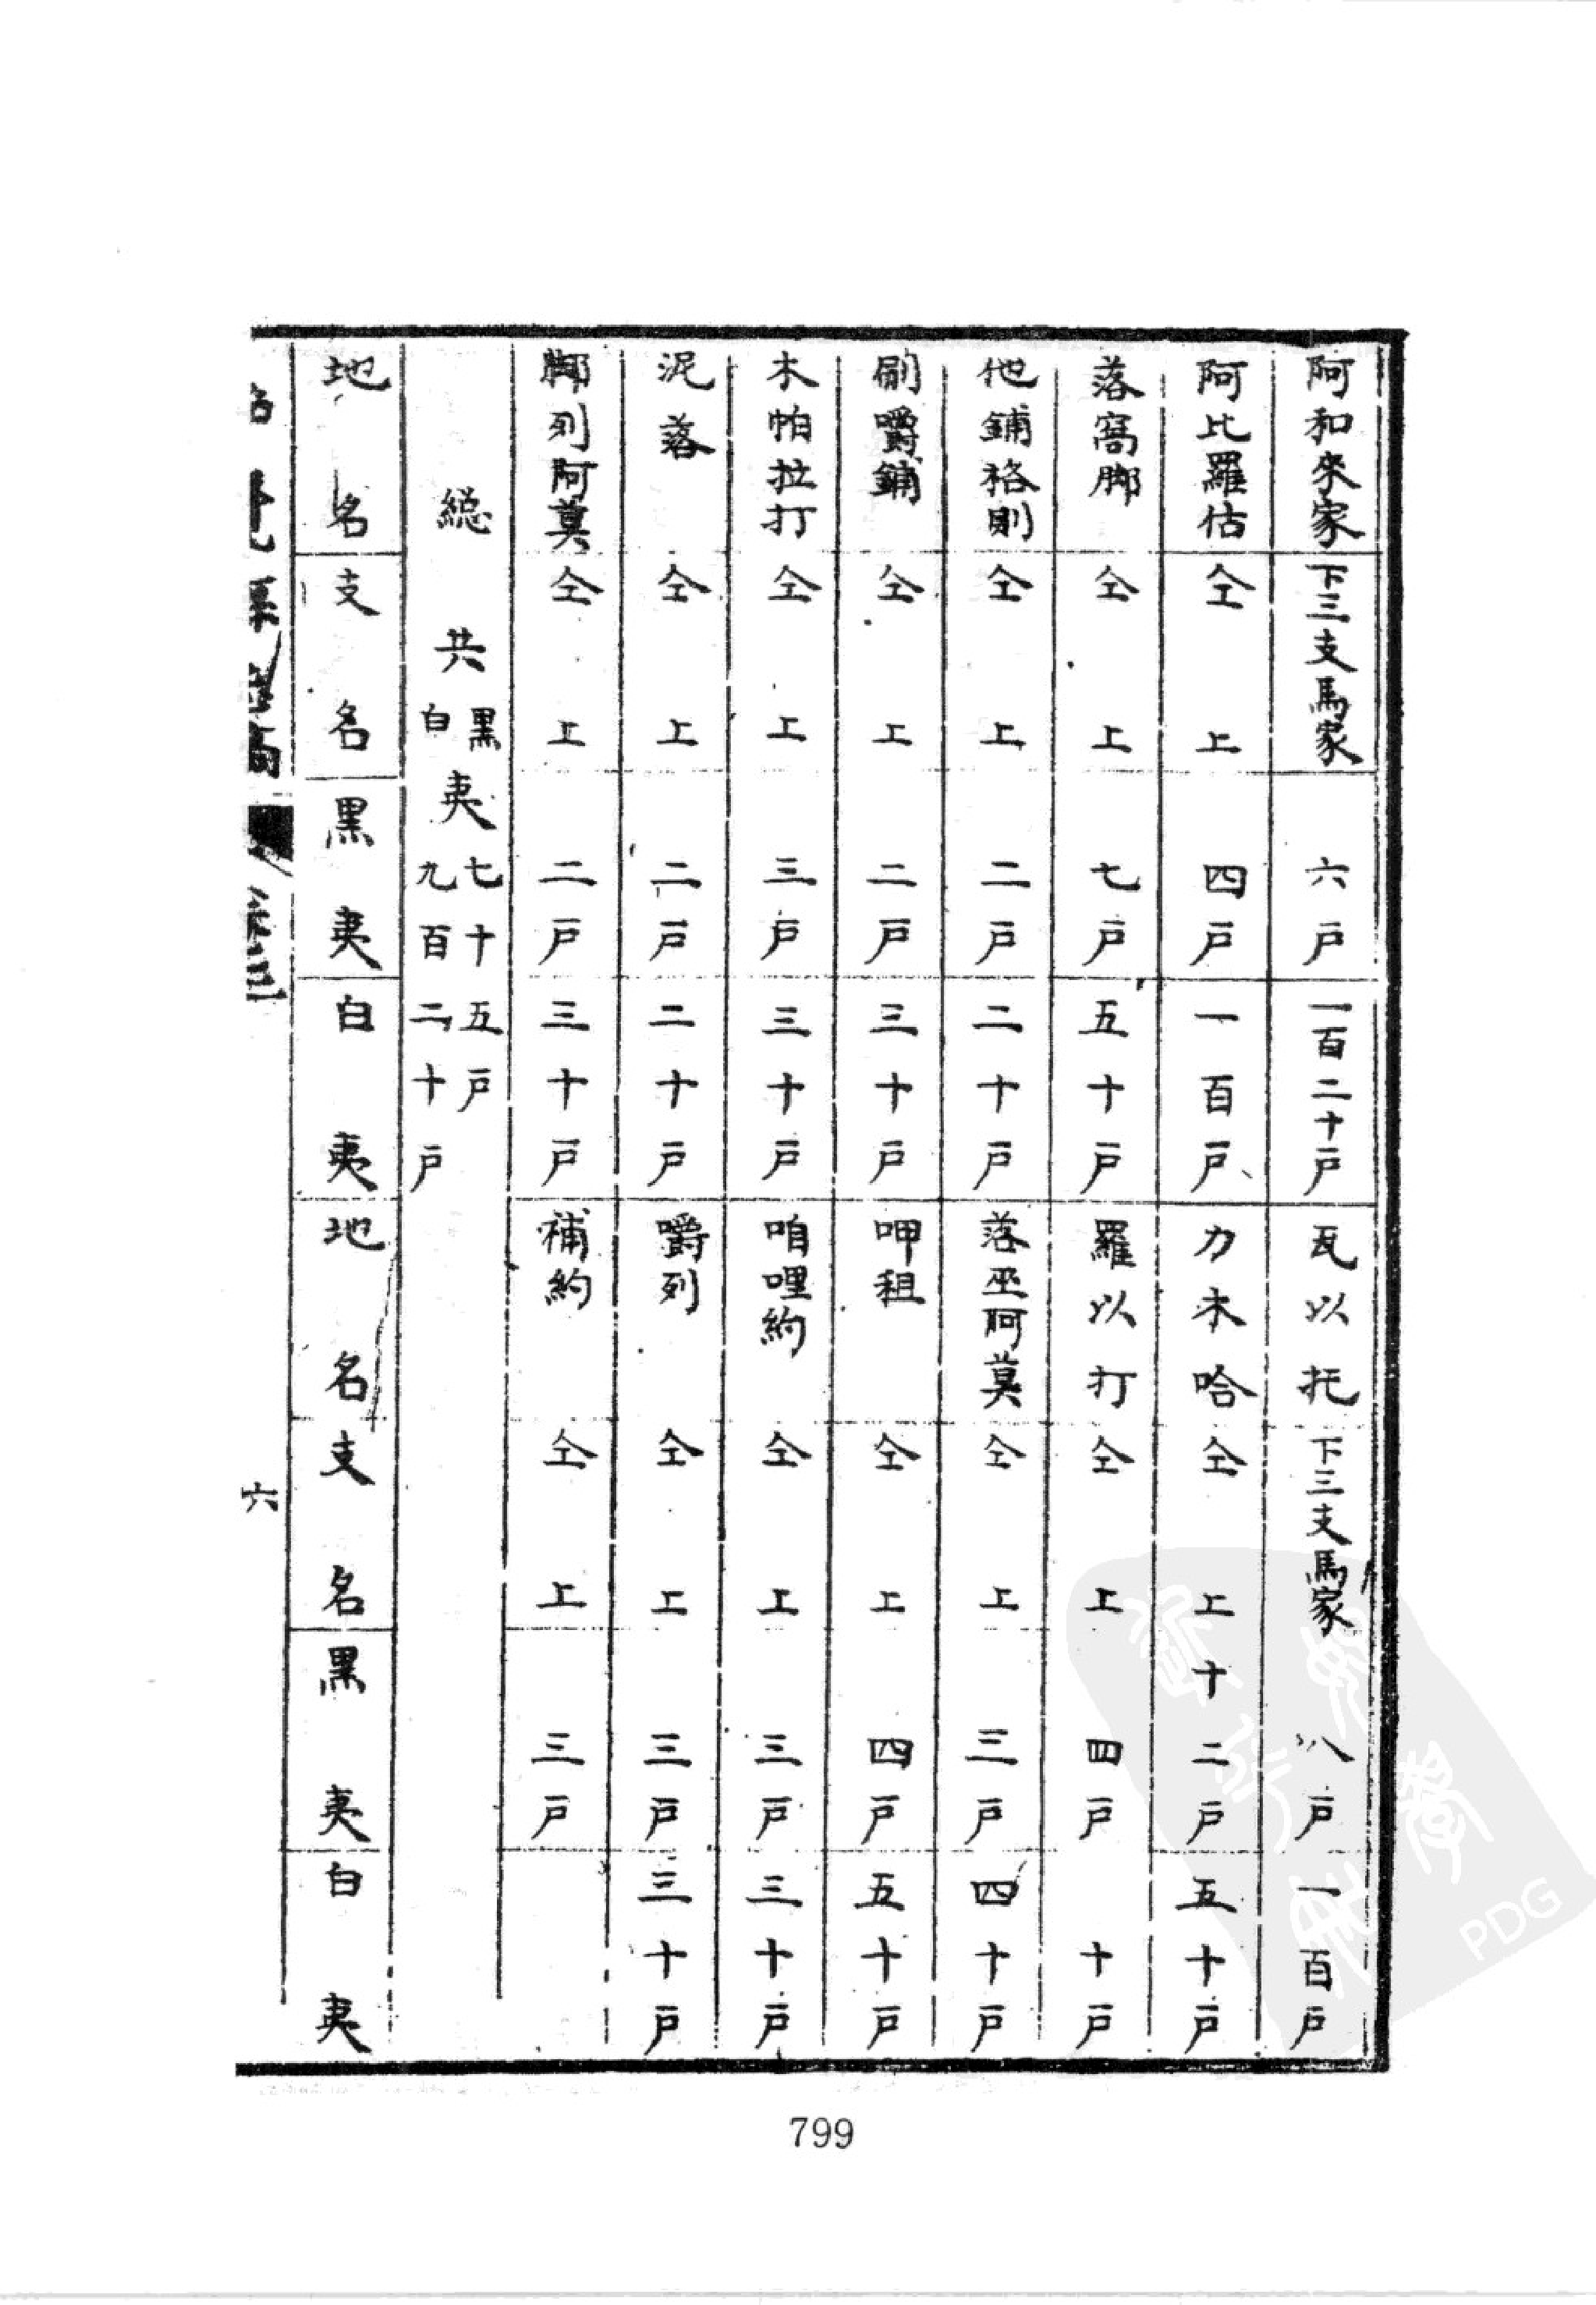 阿和來家 下三支馬家 六戶 一百二十戶 瓦以托 下三支馬家 八戶 一百戶
阿比羅估 仝上 四戶 一百戶 力木哈 仝上 十二戶 五十戶
落窩脚 仝上 七戶 五十戶 羅以打 仝上 四戶 十戶
他鋪格則 仝上 二戶 二十戶 落巫阿莫 仝上 三戶 四十戶
嚼鋪 仝上 二戶 三十戶 呷租 仝上 四戶 五十戶
木帕拉打 仝上 三戶 三十戶 咱哩約 仝上 三戶 三十戶
泥落 仝上 二戶 二十戶 嚼列 仝上 三戶 三十戶
脚列阿莫 仝上 二戶 三十戶 補約 仝上 三戶
総共 黑白夷 七十五戶 九百二十戶
地名 支名 黑夷 白夷 地名 支名 黑夷 白夷
六
799
PDG